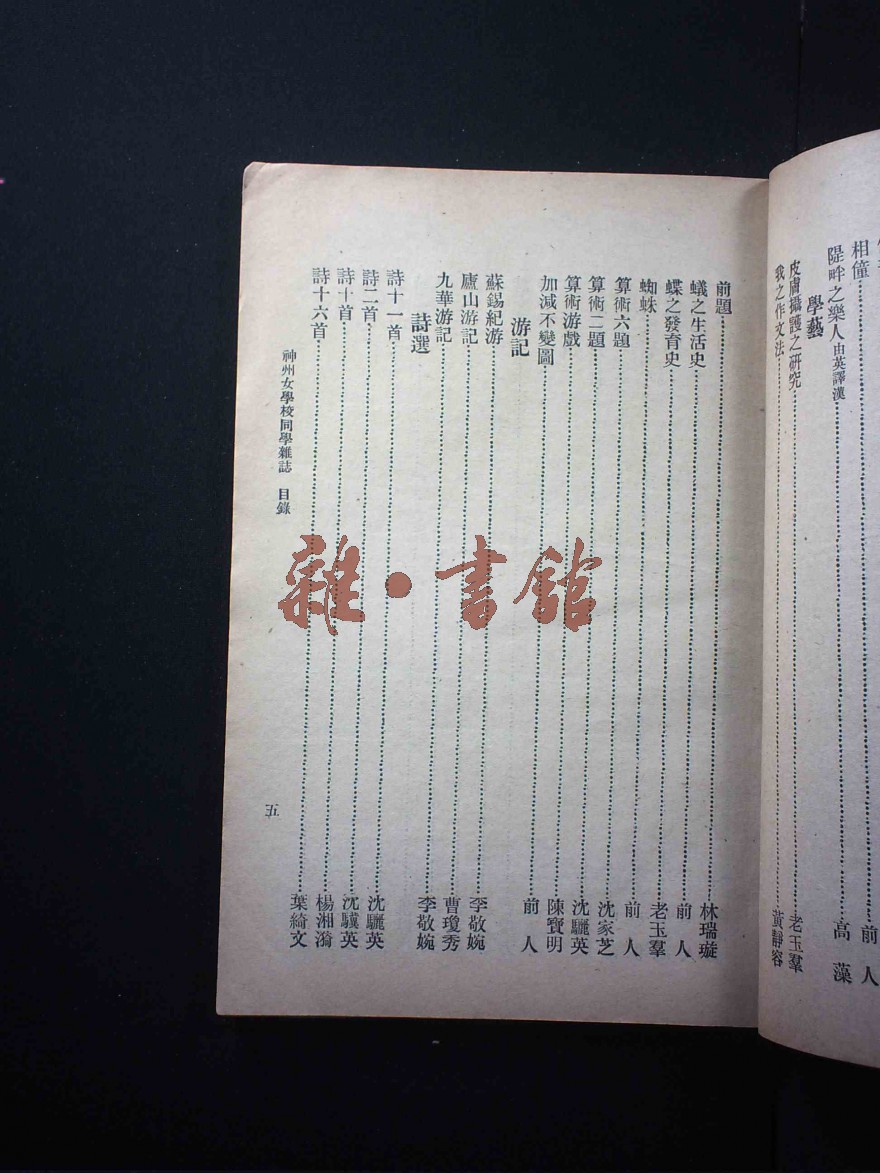 相僮……前人
隄畔之樂人由英譯漢……高藻
學藝
皮膚攝護之研究……老玉羣
我之作文法……黃靜容
前題……林瑞璇
蟻之生活史……前人
蝶之發育史……老玉羣
蜘蛛……前人
算術六題……沈家芝
算術二題……沈驪英
算術游戲……陳寶明
加減不變圖……前人
游記
蘇錫紀游……李敬婉
廬山游記……曹瓊秀
九華游記……李敬婉
詩選
詩十一首……沈驪英
詩二首……沈驥英
詩十首……楊湘漪
詩十六首……葉綺文
神州女學校同學雜誌 目錄
五
雜·書館